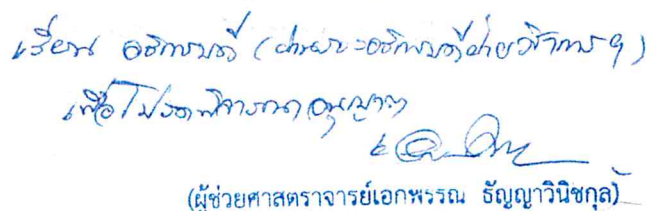 เรียน อธิการบดี (ผ่านรองอธิการบดีฝ่ายวิชาการ ฯ)
เพื่อโปรดพิจารณาอนุญาต
(ผู้ช่วยศาสตราจารย์เอกพรรณ ธัญญาวินิชกุล)